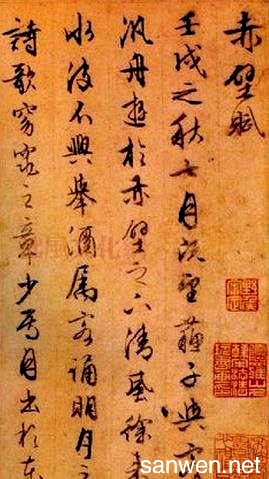 赤壁賦
壬戌之秋七月既望蘇子與客
汎舟遊於赤壁之下清風徐來
水波不興舉酒屬客誦明月之
詩歌窈窕之章少焉月出於東
sanwen.net